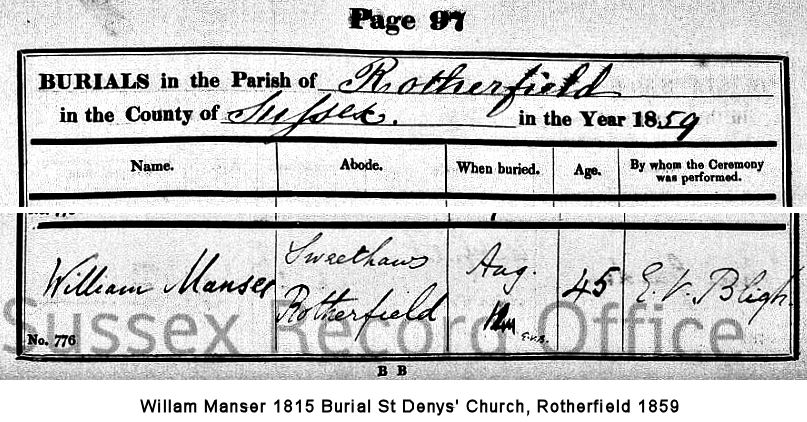 Page 97
BURIALS in the Parish of Rotherfield
in the County of Sussex. in the Year 1859
Name. Abode. When buried. Age. By whom the Ceremony was performed.
William Manser Sweethaws Rotherfield Aug. 45 E. V. Bligh.
E.V.B.
No. 776
Sussex Record Office
B B
Willam Manser 1815 Burial St Denys' Church, Rotherfield 1859